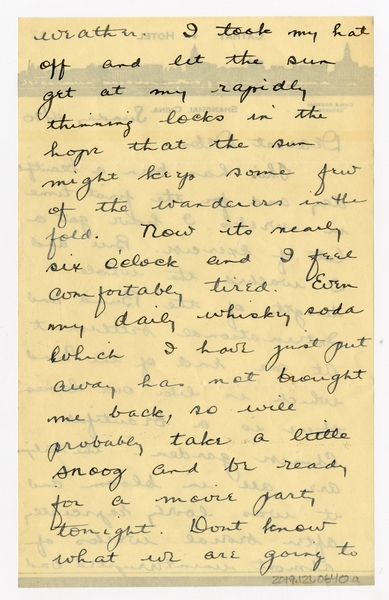 weather. I took my hat
off and let the sun
get at my rapidly
thinning locks in the
hope that the sun
might keep some few
of the wanderers in the
fold. Now its nearly
six oclock and I feel
comfortably tired. Even
my daily whiskey soda
which I have just put
away has not brought
me back, so will
probably take a little
snoog and be ready
for a movie party
tonight. Dont know
what we are going to
2019.12.0640a